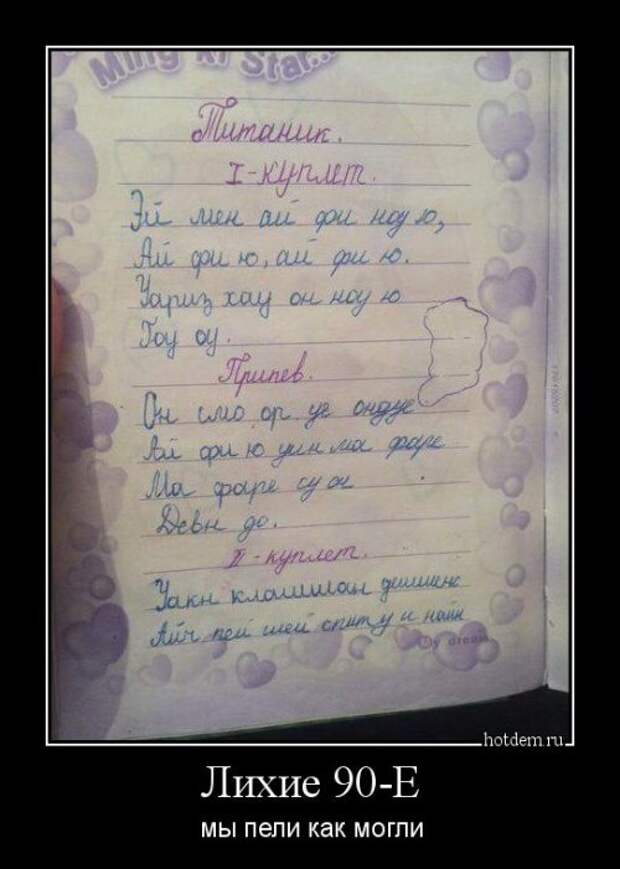 Ming ki Star...
Титаник.
I-куплет.
Эй мен ай фи ноу ю,
Ай фи ю, ай фи ю.
Уариз хау он ноу ю
Гоу оу.
Припев.
Он смо ор уе ондуе
Ай фи ю уин ма фаре
Ма фаре су он
Девн до.
II-куплет.
Уакн
Айч пей шей спиту и найн
My dream
hotdem.ru
Лихие 90-Е
мы пели как могли